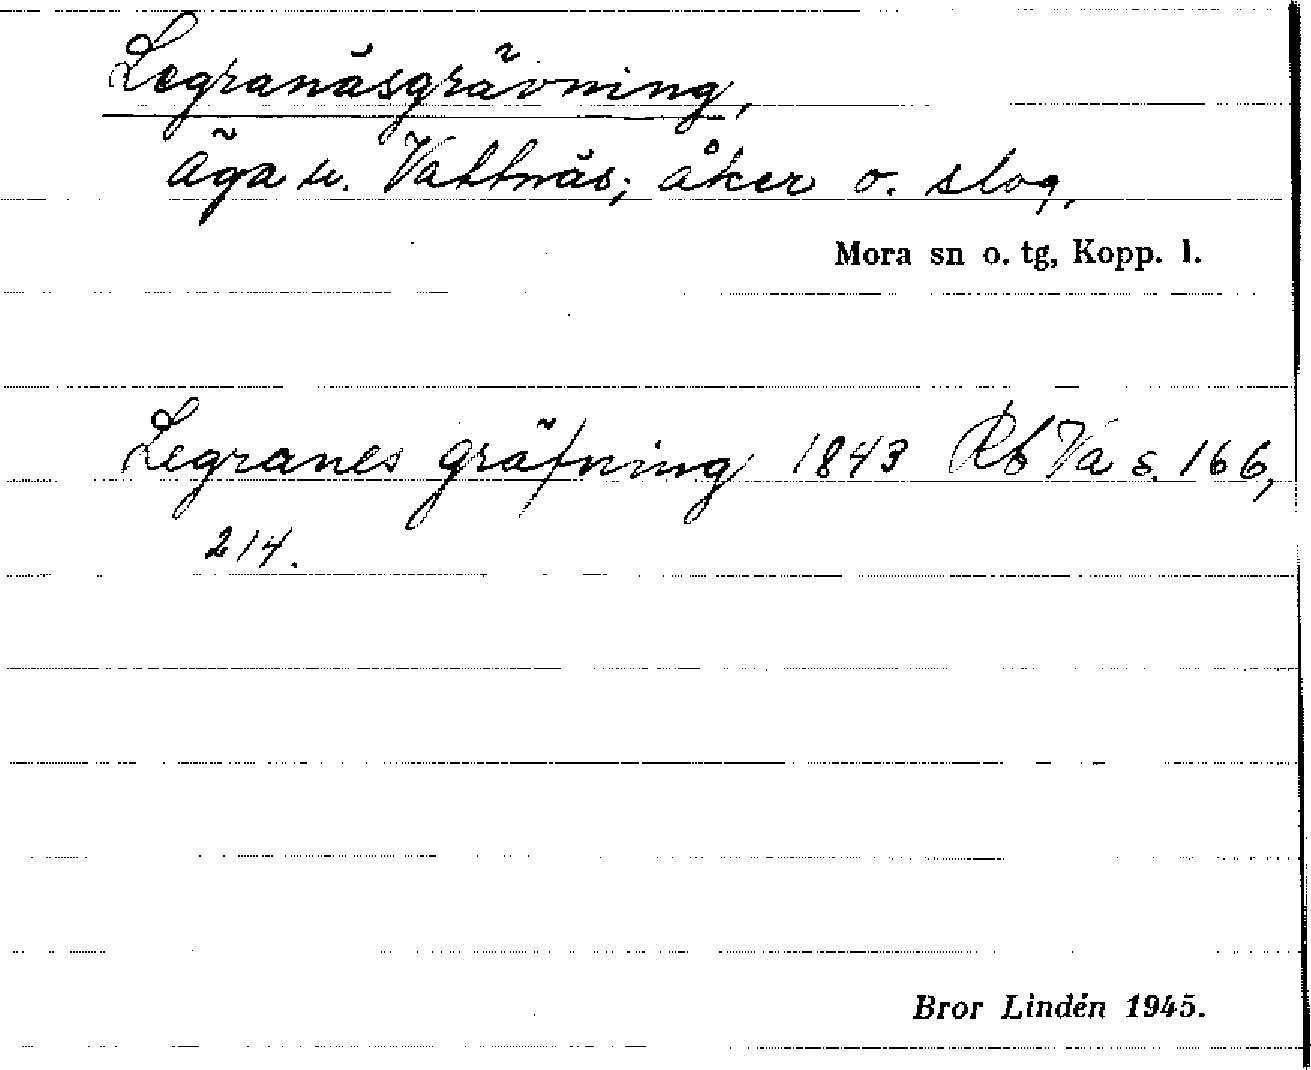 Legranäsgrävning,
äga u. Vattnäs; åker o. slog.
Mora sn o. tg, Kopp. l.
Legranes gräfning 1843 Rb Va s. 166,
214.
Bror Lindén 1945.